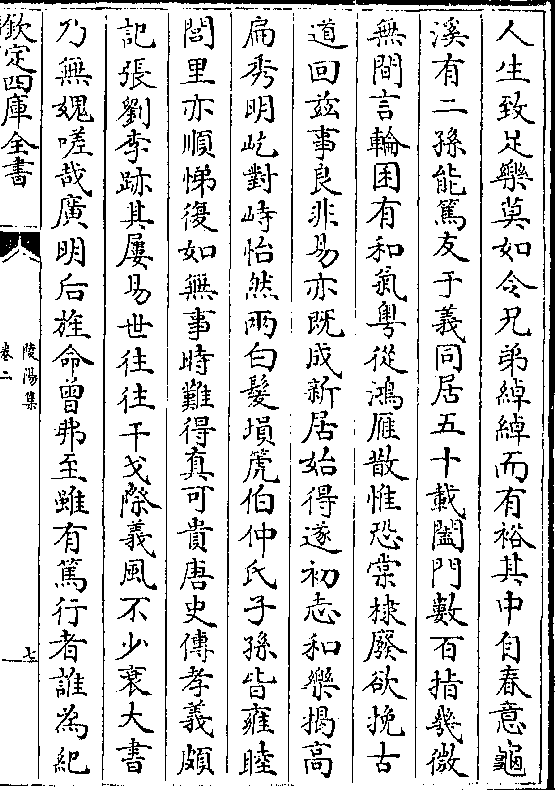 人生致足樂莫如令兄弟綽綽而有裕其中自春意龜
溪有二孫能篤友于義同居五十載闔門數百指幾微
無間言輪囷有和氣粤從鴻雁散惟恐棠棣廢欲挽古
道回兹事良非易亦既成新居始得遂初志和樂揭高
扁秀明屹對峙怡然兩白髮塤箎伯仲氏子孫皆雍睦
閭里亦順悌復如無事時難得真可貴唐史傳孝義頗
記張劉李跡其屢易世往往干戈際義風不少衰大書
乃無媿嗟哉廣明后旌命曾弗至雖有篤行者誰為紀
欽定四庫全書
陵陽集
卷二
七